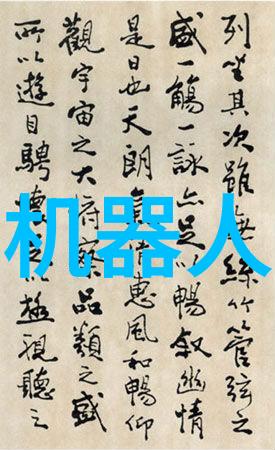 列坐其次雖無絲竹管弦之
盛一觴一詠亦足以暢敘幽情
是日也天朗氣清惠風和暢仰
觀宇宙之大俯察品類之盛
所以遊目騁懷足以極視聽之
机器人